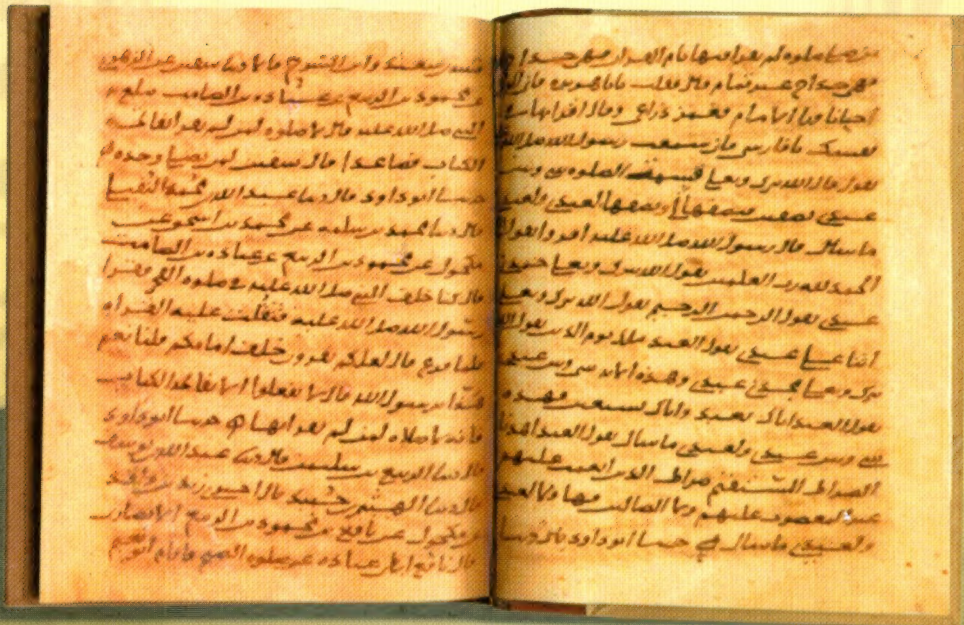 من صلى صلوه لم يقرا فيها بام القران فهي خداج
فهي خداج غير تمام قال فقلت يابا هريره فاني
احيانا ورا الامام فغمز ذراعي وقال اقرا بها
نفسك يا فارسي فاني سمعت رسول الله صلى الله
يقول قال الله تبرك وتعلى قسمت الصلوه بيني وبين
عبدي نصفين فنصفها لي ونصفها لعبدي ولعبدي
ما سال قال رسول الله صلى الله عليه اقروا يقول
الحمد لله رب العلمين يقول الله تبرك وتعلى حمدني
عبدي يقول الرحمن الرحيم يقول الله تبرك وتعلى
اثنا علي عبدي يقول العبد ملك يوم الدين يقول الله
تبرك وتعلى مجدني عبدي وهذه الايه بيني وبين عبدي
يقول العبد اياك نعبد واياك نستعين فهذه
بيني وبين عبدي ولعبدي ما سال يقول العبد اهدنا
الصراط المستقيم صراط الذين انعمت عليهم
غير المغضوب عليهم ولا الضالين فهاولا لعبدي
ولعبدي ما سال حدثنا ابو داود قال حدثنا
قتيبه بن سعيد وابن السرح قالا حدثنا سفين عن الزهري
عن محمود بن الربيع عن عباده بن الصامت يبلغ به
النبي صلى الله عليه قال لا صلوه لمن لم يقرا بفاتحه
الكتاب فصاعدا قال سفين لمن يصلي وحده
حدثنا ابو داود قال حدثنا عبد الله بن محمد النفيلي
قال حدثنا محمد بن سلمه عن محمد بن اسحق عن
مكحول عن محمود بن الربيع عن عباده بن الصامت
قال كنا خلف النبي صلى الله عليه في صلوه الفجر فقرا
رسول الله صلى الله عليه فثقلت عليه القراه
فلما فرغ قال لعلكم تقرون خلف امامكم قلنا نعم
هذا يا رسول الله قال لا تفعلوا الا بفاتحه الكتاب
فانه لا صلاه لمن لم يقرا بها حدثنا ابو داود
قال حدثنا الربيع بن سليمن قال حدثنا عبد الله بن يوسف
قال حدثنا الهيثم بن حميد قال اخبرني زيد بن واقد
عن مكحول عن نافع بن محمود بن الربيع الانصاري
قال نافع ابطا عباده عن صلوه الصبح فاقام ابو نعيم